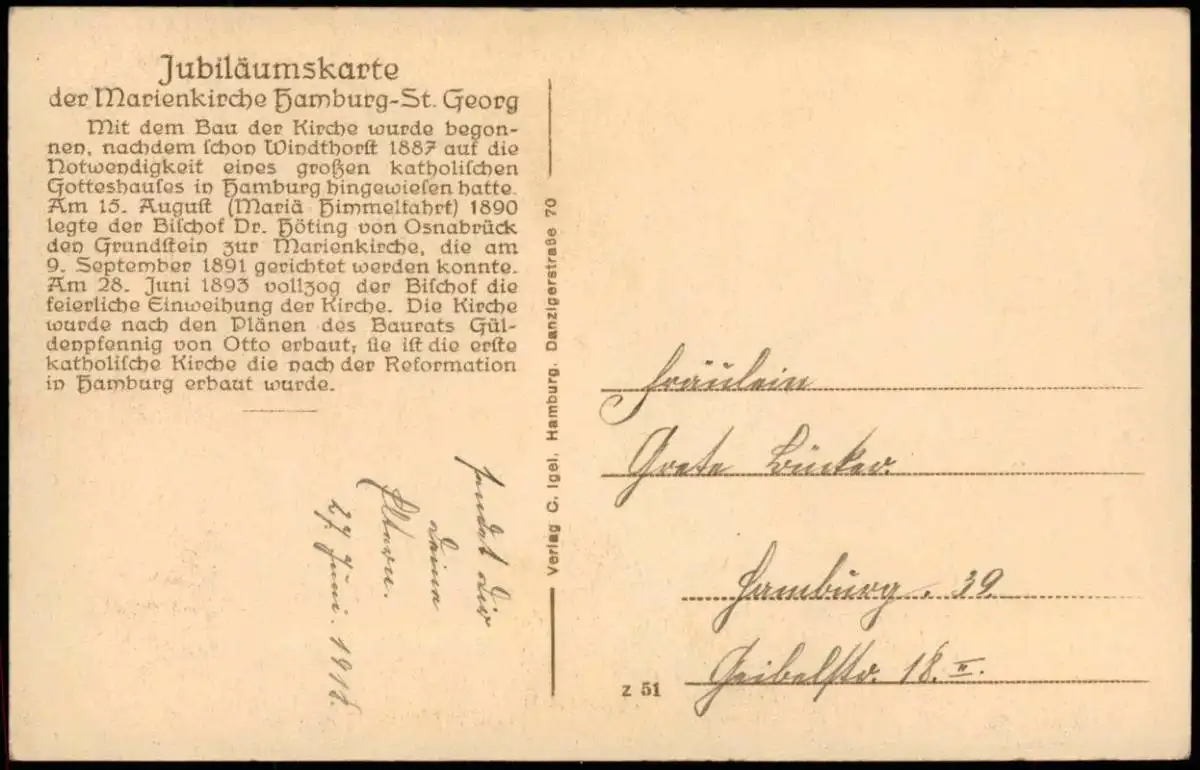 Jubiläumskarte
der Marienkirche Hamburg-St. Georg
Mit dem Bau der Kirche wurde begon-
nen, nachdem schon Windthorst 1887 auf die
Notwendigkeit eines großen katholischen
Gotteshauses in Hamburg hingewiesen hatte.
Am 15. August (Mariä Himmelfahrt) 1890
legte der Bischof Dr. Höting von Osnabrück
den Grundstein zur Marienkirche, die am
9. September 1891 gerichtet werden konnte.
Am 28. Juni 1893 vollzog der Bischof die
feierliche Einweihung der Kirche. Die Kirche
wurde nach den Plänen des Baurats Gül-
denpfennig von Otto erbaut; sie ist die erste
katholische Kirche die nach der Reformation
in Hamburg erbaut wurde.
sendet dir
deine
Eltern.
27. Juni. 1918.
Verlag C. Igel, Hamburg, Danzigerstraße 70
Fräulein
Grete Bücker.
Hamburg. 39.
Geibelstr. 18. II.
Z 51